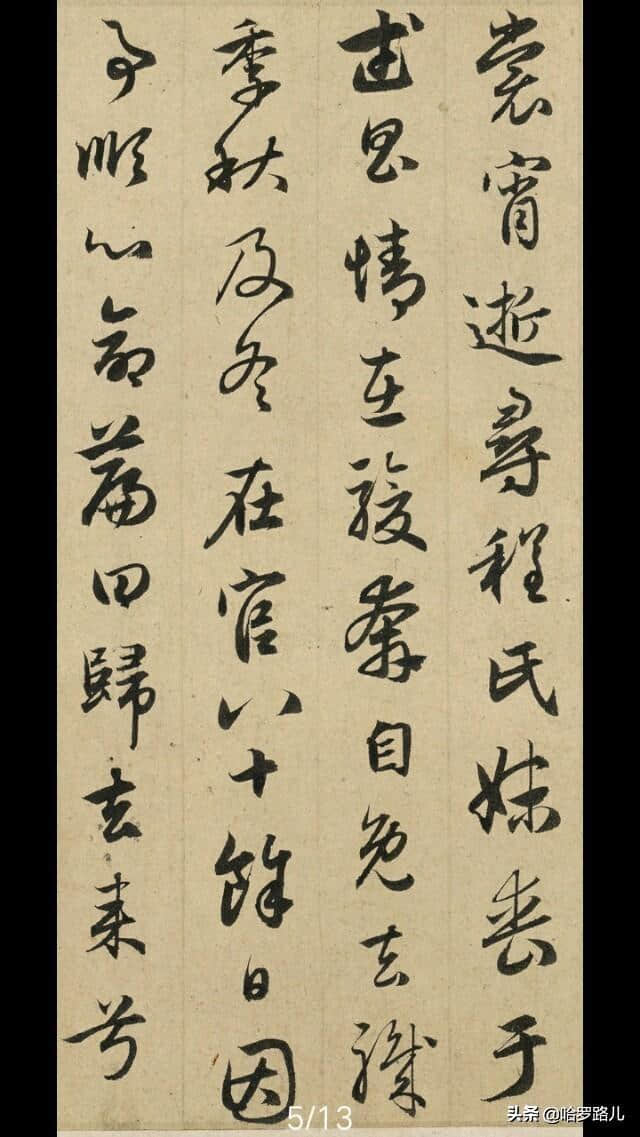 裳宵逝尋程氏妹喪于
武昌情在駿奔自免去職
季秋及冬在官八十餘日因
事順心命篇曰歸去來兮
5/13
头条 @哈罗路儿